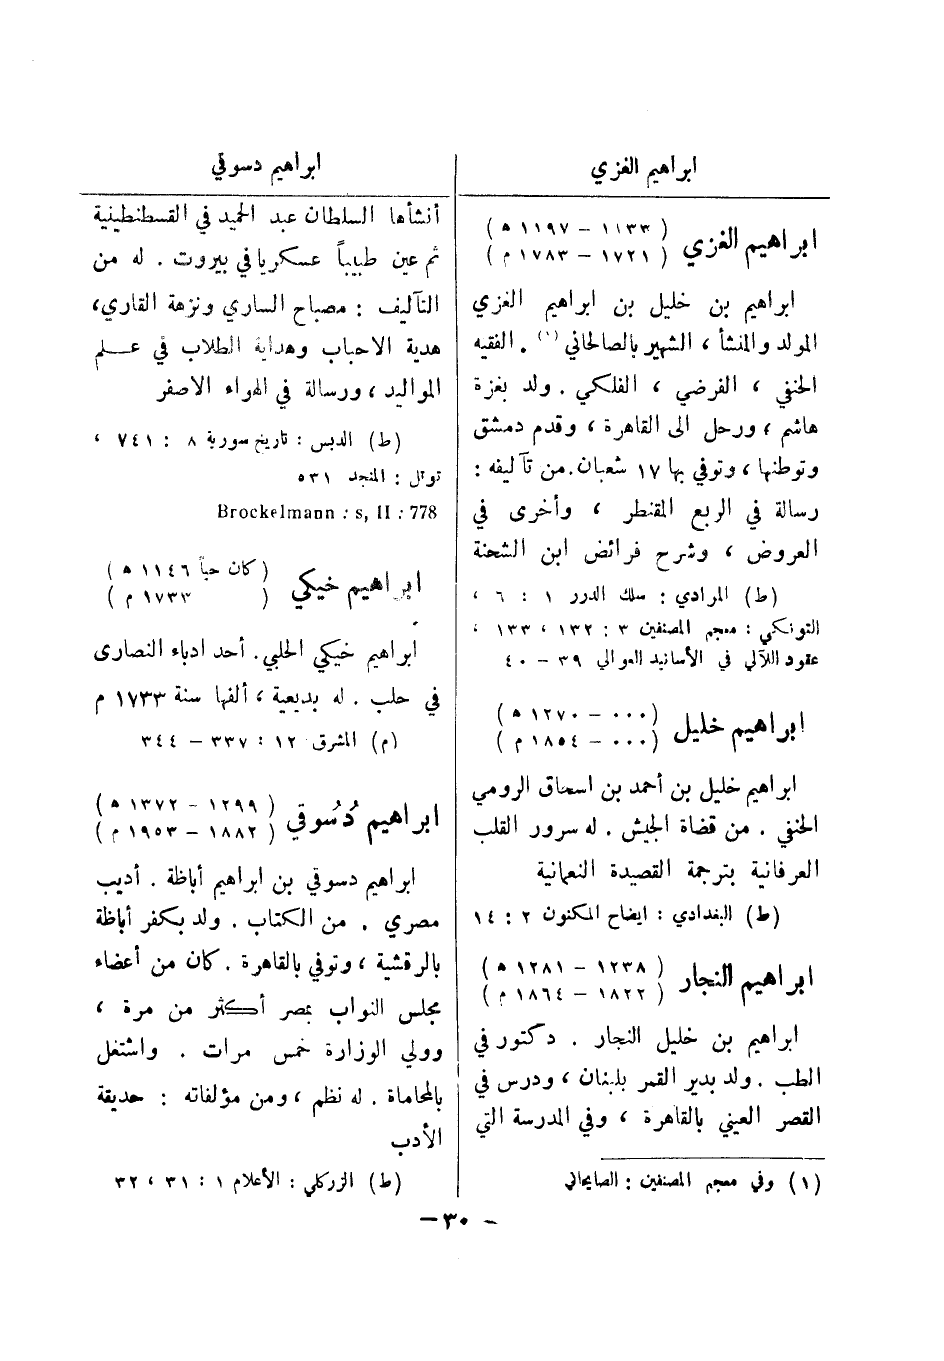 ابراهيم الغزي
ابراهيم الغزي ( ١١٣٣ – ١١٩٧ ه )
( ١٧٢١ – ١٧٨٣ م )
ابراهيم بن خليل بن ابراهيم الغزي
المولد والمنشأ ، الشهير بالصالحاني (١) . الفقيه
الحنفي ، الفرضي ، الفلكي . ولد بغزة
هاشم ، ورحل الى القاهرة ، وقدم دمشق
وتوطنها ، وتوفي بها ١٧ شعبان. من تآليفه :
رسالة في الربع المقنطر ، وأخرى في
العروض ، وشرح فرائض ابن الشحنة
(ط) المرادي : سلك الدرر ١ : ٦ ،
التونكي : معجم المصنفين ٣ : ١٣٢ ، ١٣٣ ،
عقود اللآلي في الأسانيد العوالي ٣٩ – ٤٠
ابراهيم خليل ( ٠٠٠ – ١٢٧٠ ه )
( ٠٠٠ – ١٨٥٤ م )
ابراهيم خليل بن أحمد بن اسحاق الرومي
الحنفي . من قضاة الجيش . له سرور القلب
العرفانية بترجمة القصيدة النعمانية
(ط) البغدادي : ايضاح المكنون ٢ : ١٤
ابراهيم النجار ( ١٢٣٨ – ١٢٨١ ه )
( ١٨٢٢ – ١٨٦٤ م )
ابراهيم بن خليل النجار . دكتور في
الطب . ولد بدير القمر بلبنان ، ودرس في
القصر العيني بالقاهرة ، وفي المدرسة التي
(١) وفي معجم المصنفين : الصايحاني
ابراهيم دسوقي
أنشأها السلطان عبد الحميد في القسطنطينية
ثم عين طبيباً عسكريا في بيروت . له من
التآليف : مصباح الساري ونزهة القاري،
هدية الاحباب وهداية الطلاب في عــلم
المواليد ، ورسالة في الهواء الاصفر
(ط) الدبس : تاريخ سورية ٨ : ٧٤١ ،
توتل : المنجد ٥٣١
Brockelmann : s, II : 778
ابراهيم خيكي ( كان حياً ١١٤٦ ه )
( ١٧٣٣ م )
ابراهيم خيكي الحلبي. أحد ادباء النصارى
في حلب . له بديعية ، ألفها سنة ١٧٣٣ م
(م) المشرق ١٢ : ٣٣٧ – ٣٤٤
ابراهيم دُسُوقي ( ١٢٩٩ – ١٣٧٢ ه )
( ١٨٨٢ – ١٩٥٣ م )
ابراهيم دسوقي بن ابراهيم أباظة . أديب
مصري . من الكتاب . ولد بكفر أباظة
بالرقشية ، وتوفي بالقاهرة . كان من أعضاء
مجلس النواب بمصر أكثر من مرة ،
وولي الوزارة خمس مرات . واشتغل
بالمحاماة . له نظم ، ومن مؤلفاته : حديقة
الأدب
(ط) الزركلي : الأعلام ١ : ٣١ ، ٣٢
– ٣٠ –